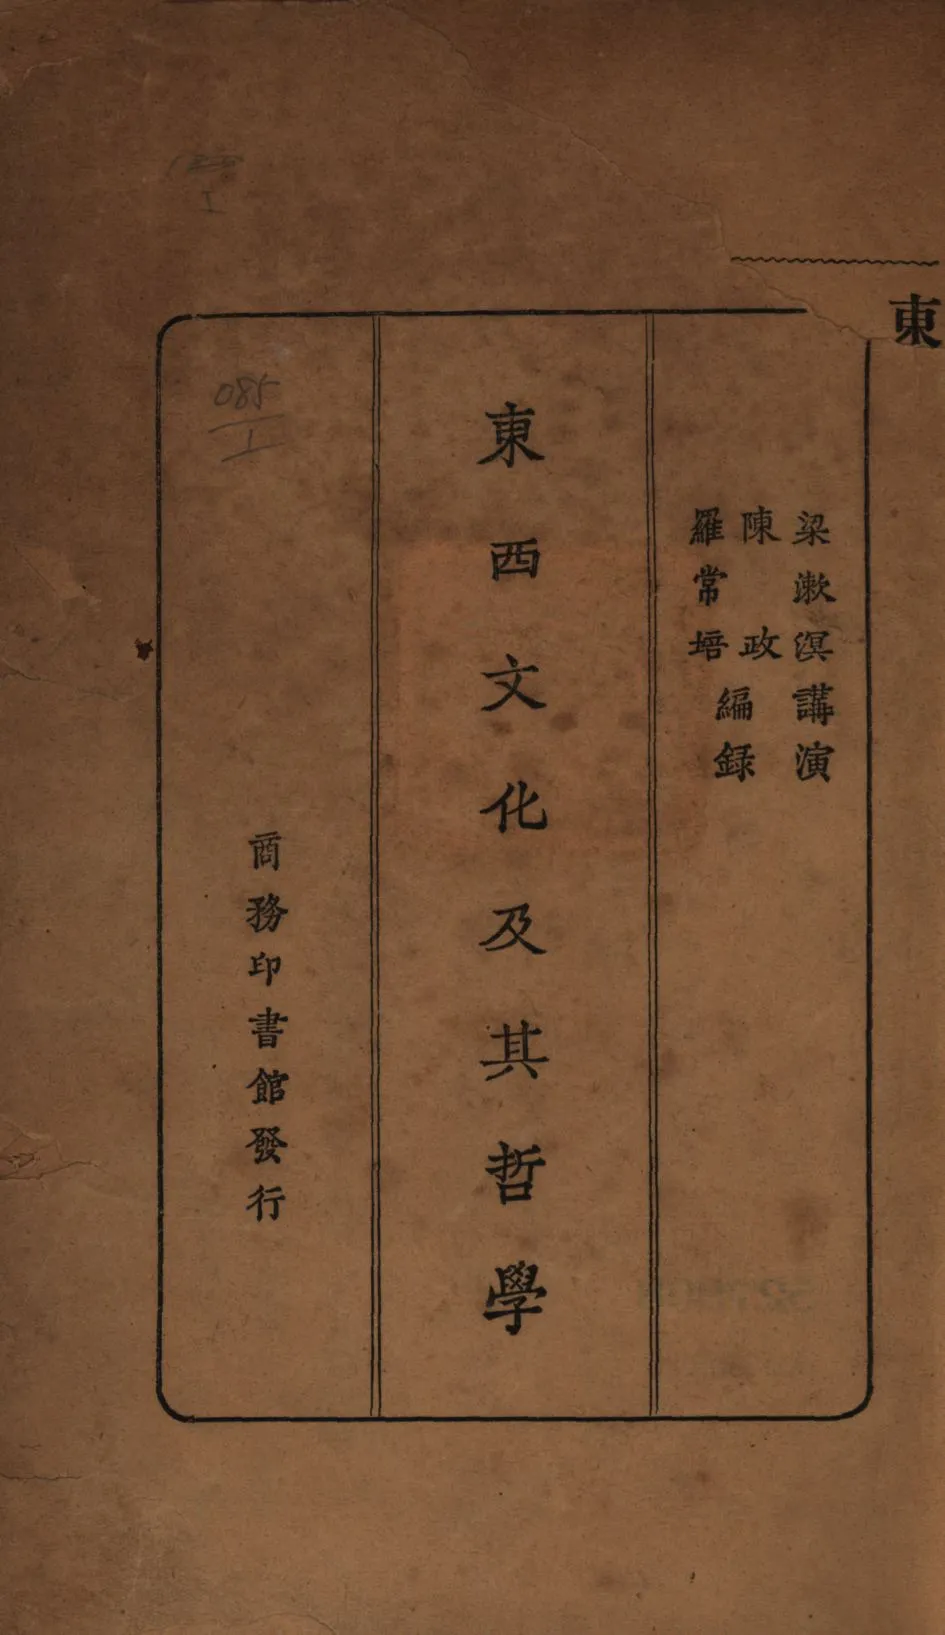 東
梁漱溟講演
陳政
羅常培
編録
東西文化及其哲學
商務印書館發行
085
1